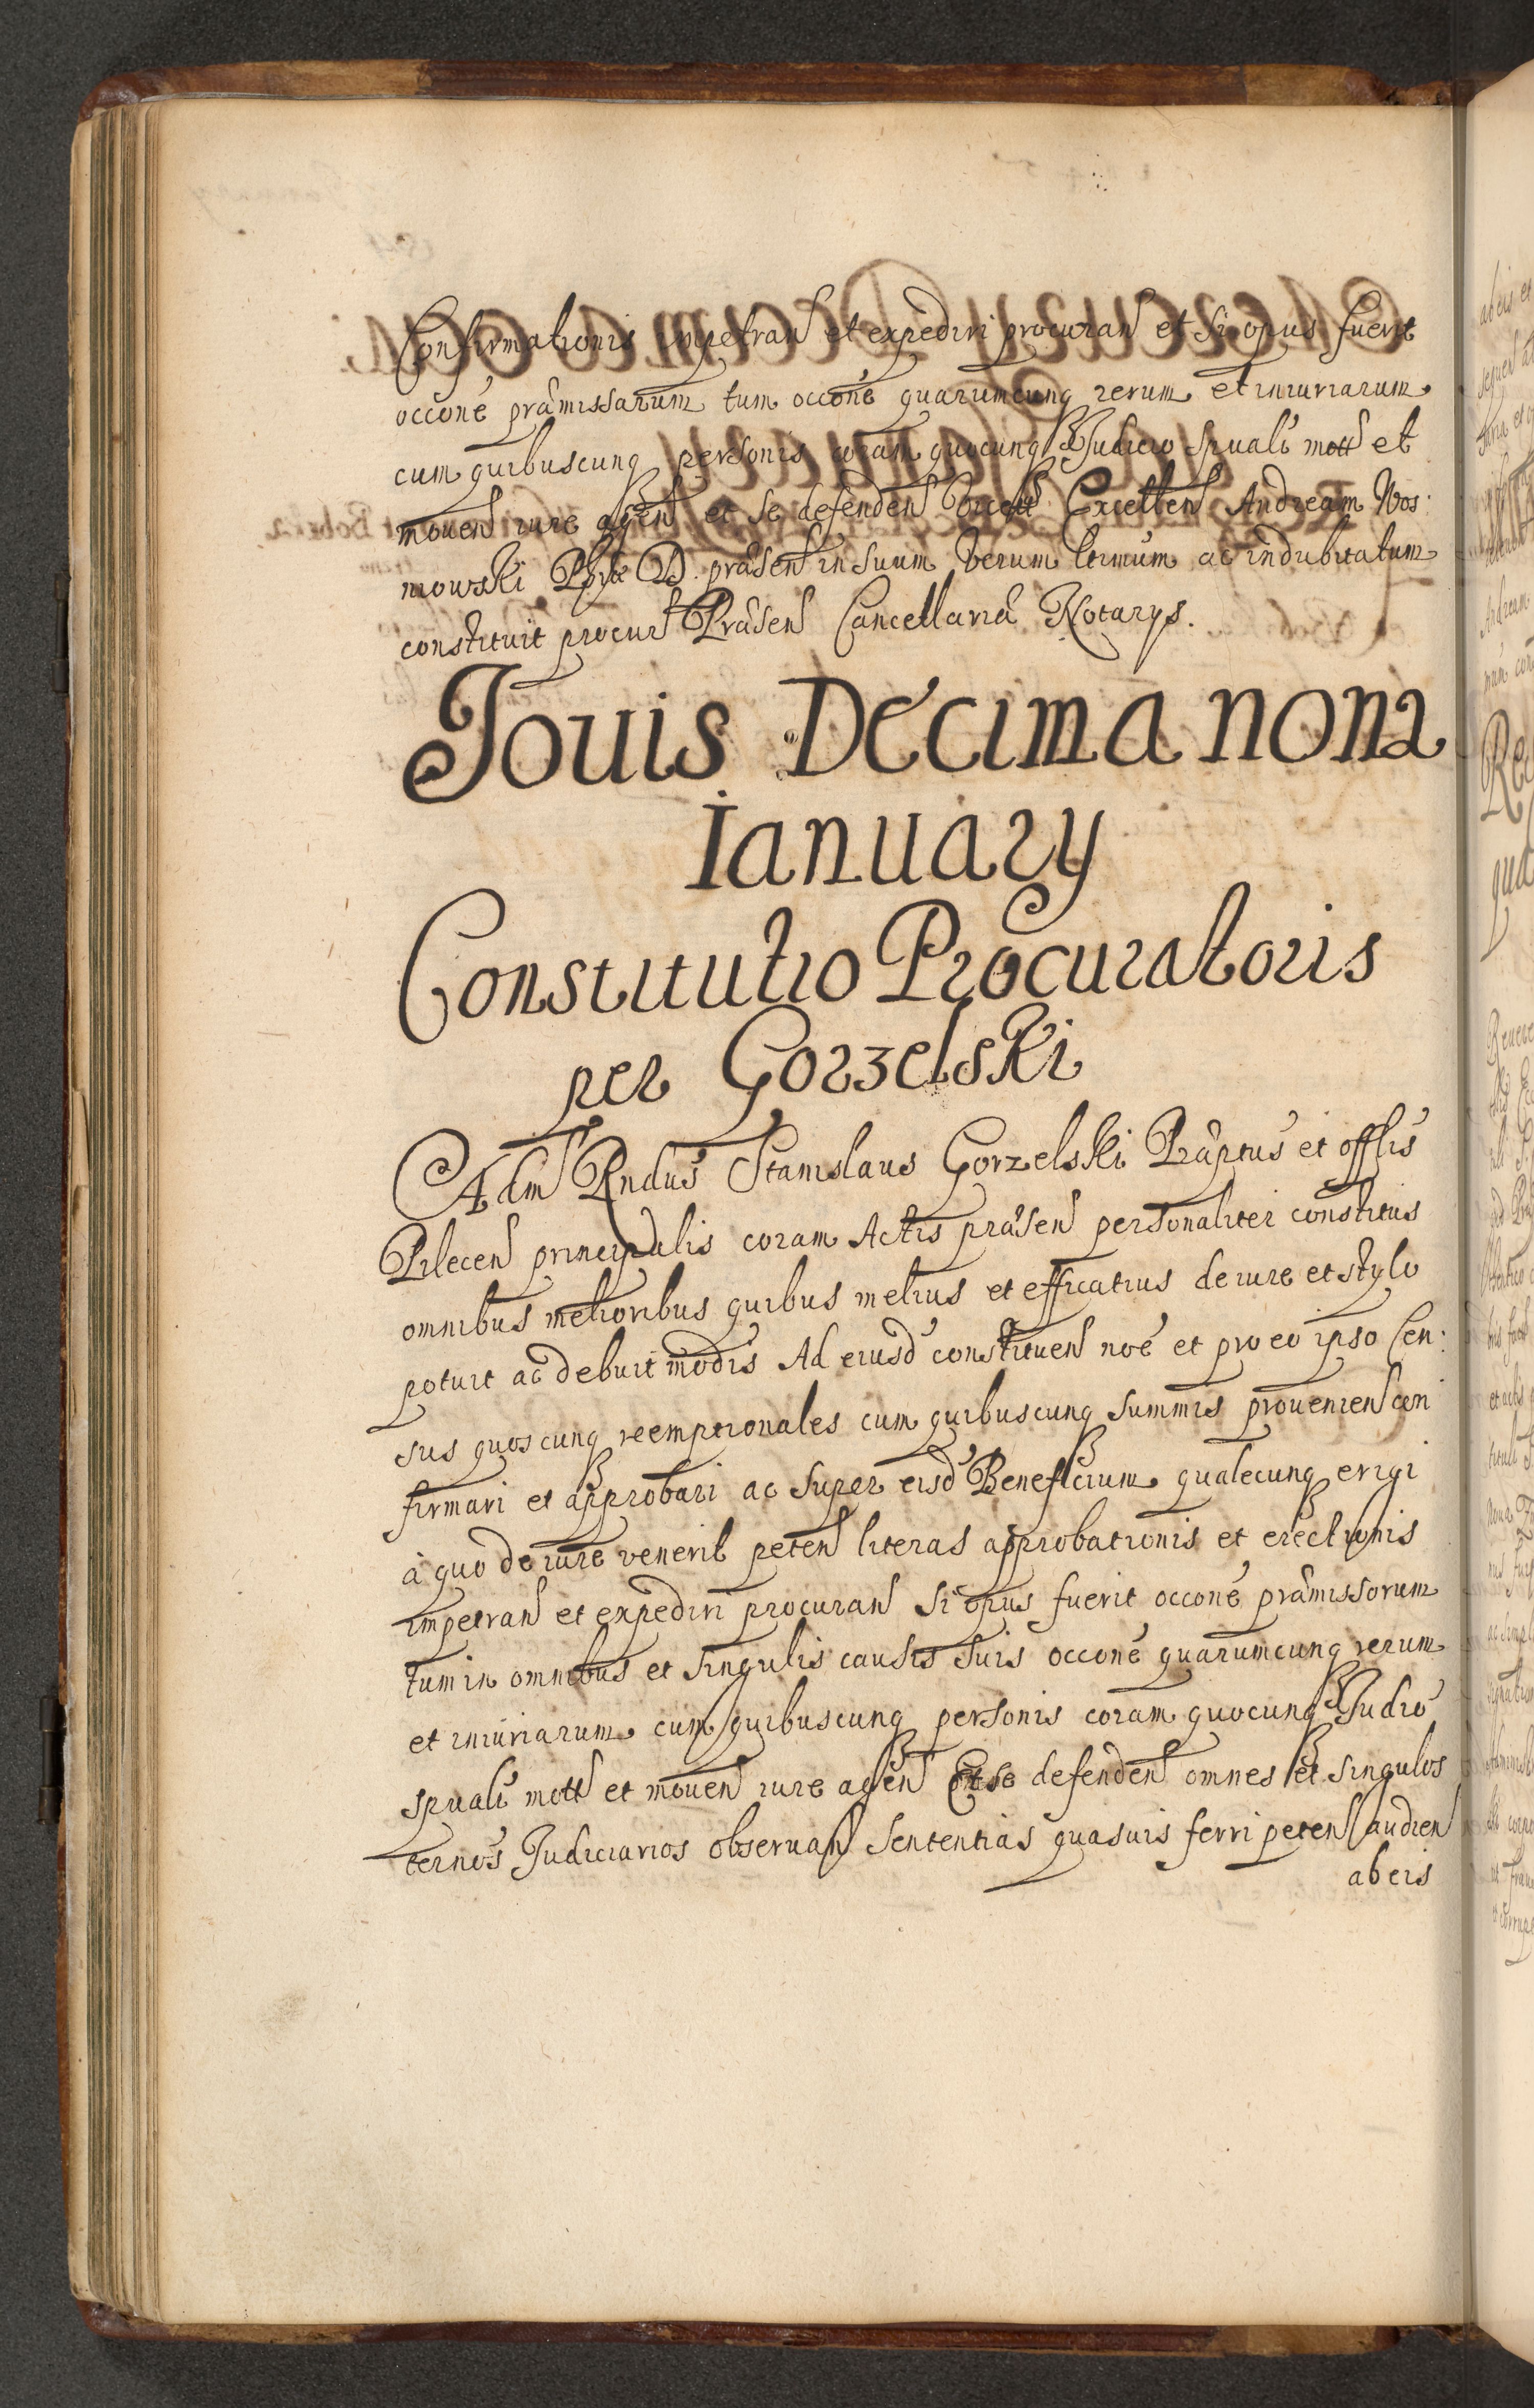 Confirmationis impetran et expediri procuran et si opus fuerit
occoné prâmissarum tum occoné quarumcunq rerum et iniuriarum
cum quibuscunq personis coram quocunq Judicio spuali mott et
mouen iure agen et se defenden Excellen Andream Wos:
niowski Phiæ D. prâsen in suum verum ltimum ac indubitatum
constituit procur Prâsen Cancellariâ Notarys.
Jouis Decima nona
Ianuary
Constitutio Procuratoris
per Gorzelski
Adm Rndus Stanislaus Gorzelski Prâptus et offlis
Pilecen principalis coram Actis prâsen personaliter constitus
omnibus melioribus quibus melius et efficatius de iure et stylo
potuit ac debuit modis Ad eiusd constituen noé et pro eo ipso Cen:
sus quoscunq reemptionales cum quibuscunq summis prouenien con
firmari et approbari ac super eisd Beneficium qualecunq erigi
à quo de iure venerit peten literas approbationis et erectionis
impetran et expediri procuran si opus fuerit occoné prâmissorum
tum in omnibus et singulis causis suis occoné quarumcunq rerum
et iniuriarum cum quibuscunq personis coram quocunq Judio
spuali mott et mouen iure agen Et se defenden omnes et singulos
ternos Judiciarios obseruan Sententias quasuis ferri peten audien
ab eis